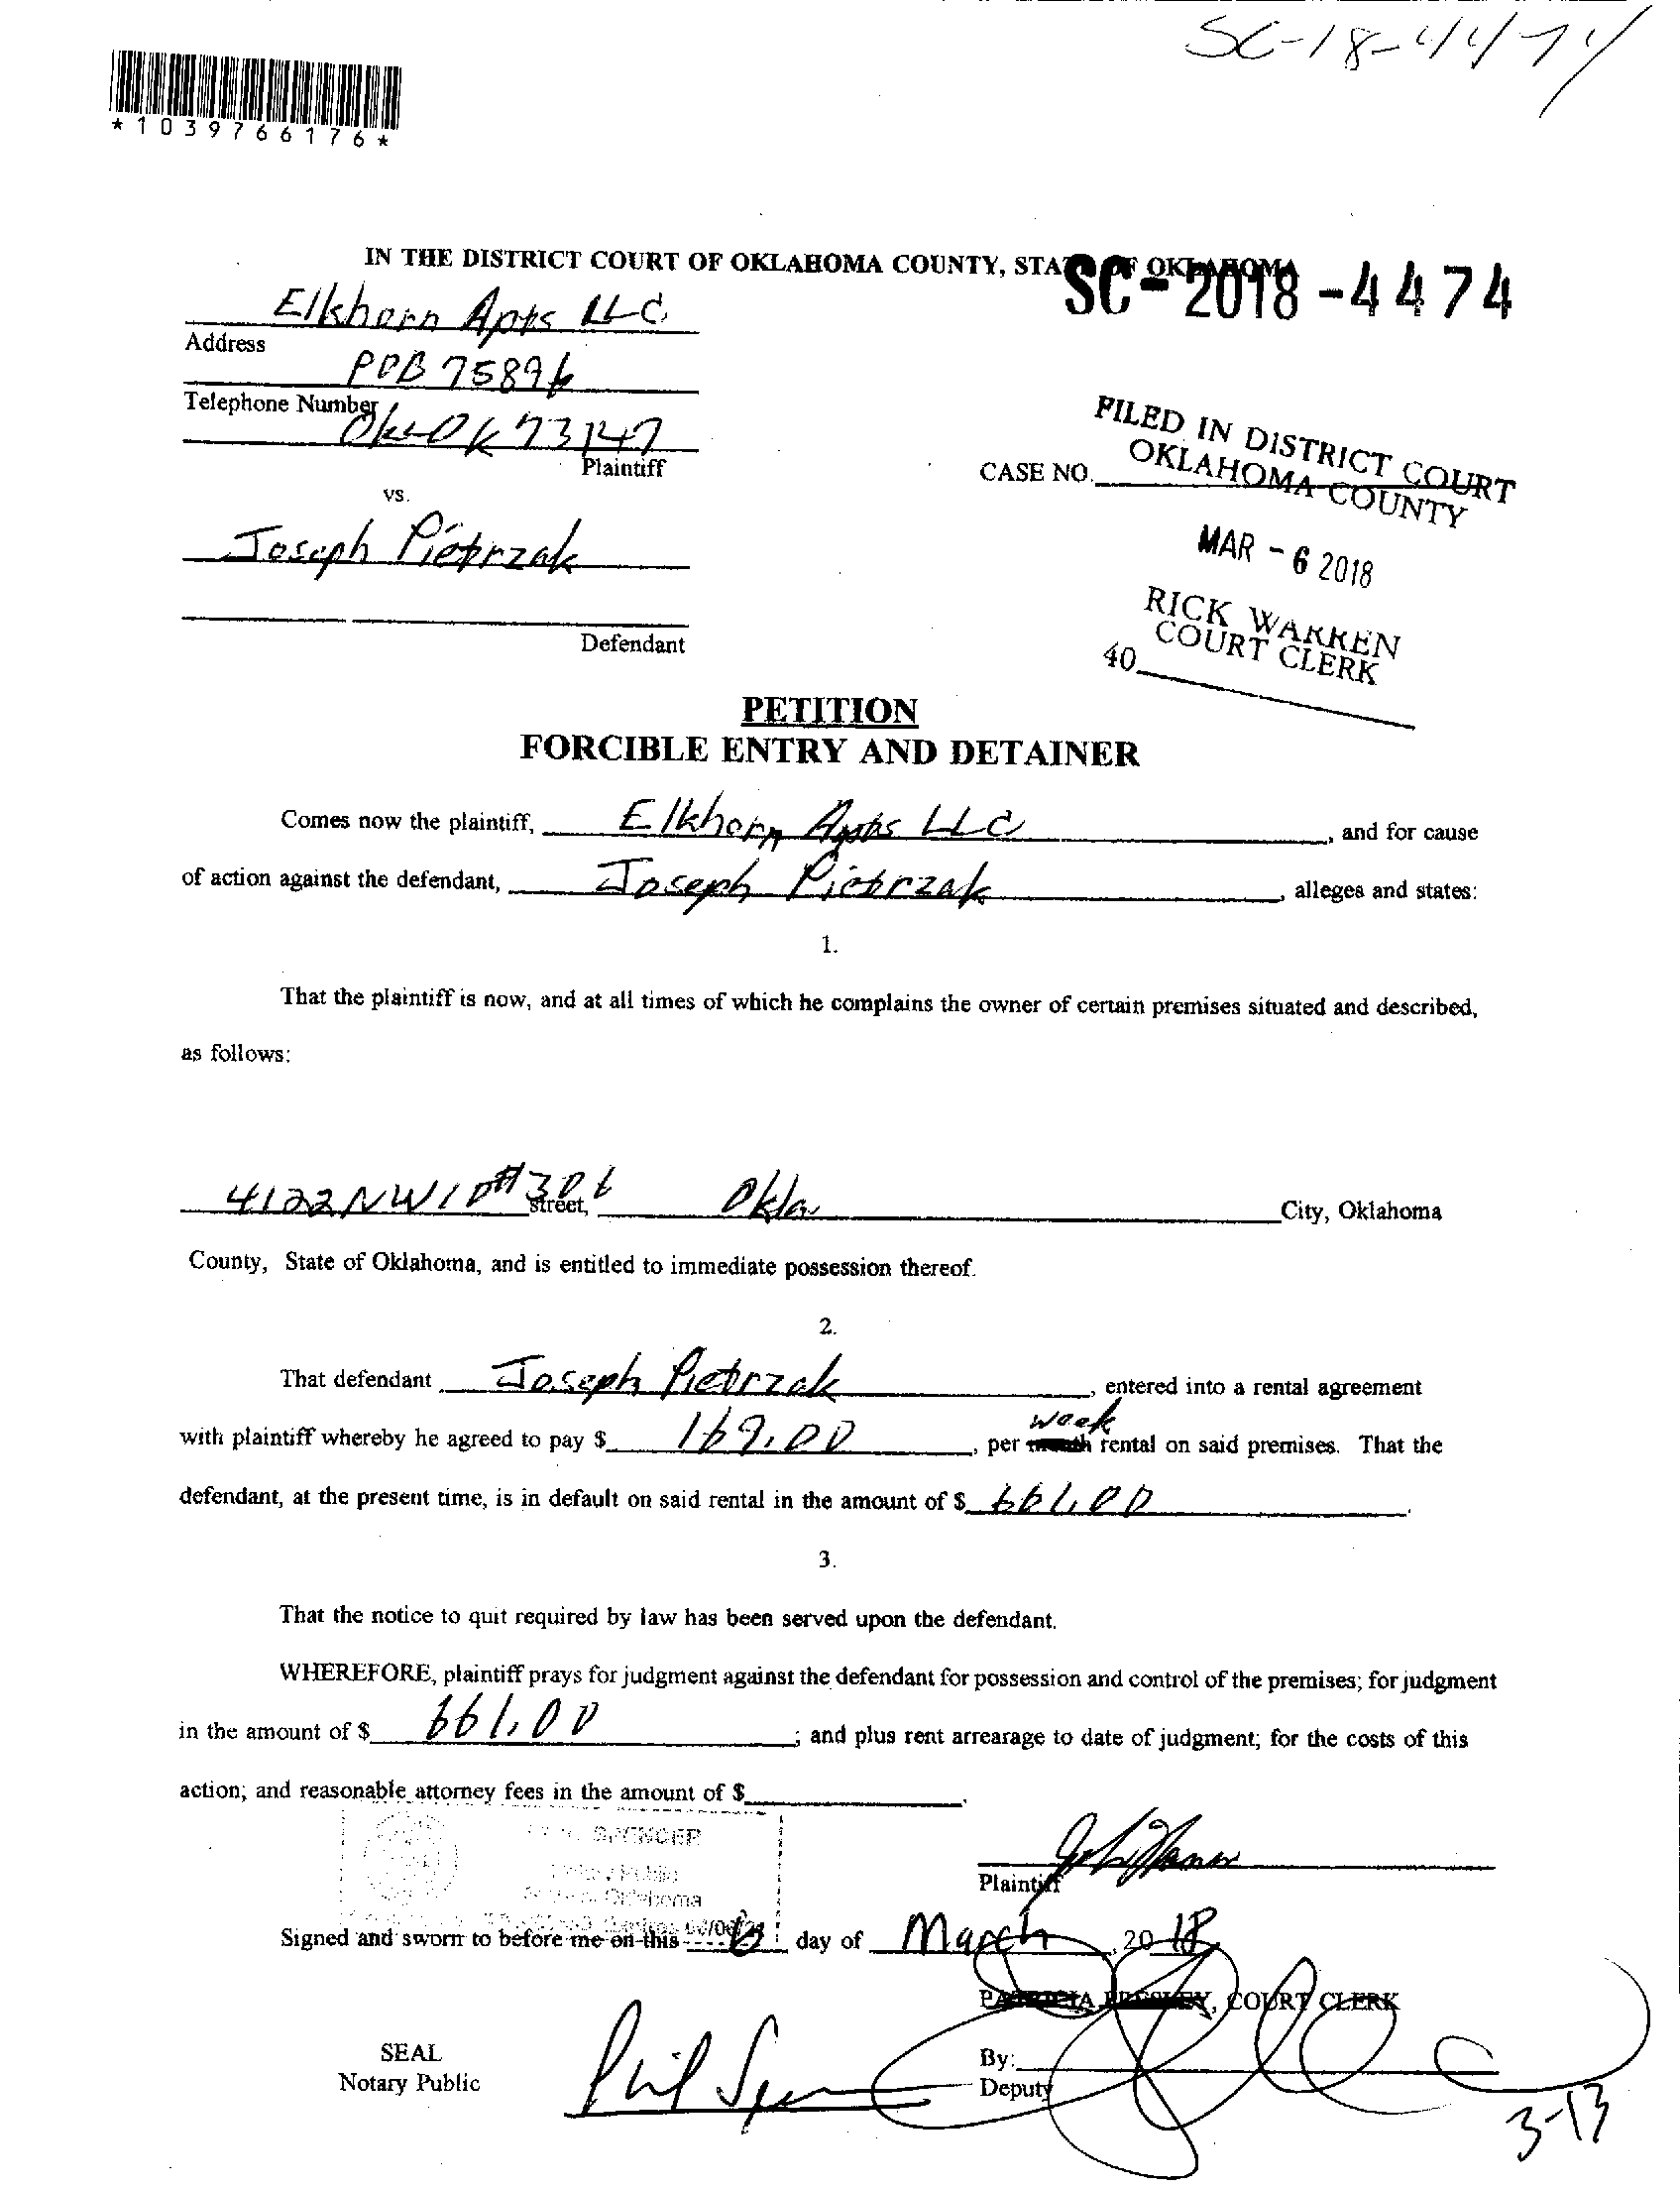 SC-18-4474
*1039766176*
IN THE DISTRICT COURT OF OKLAHOMA COUNTY, STATE OF OKLAHOMA
SC-2018-4474
Elkhorn Apts LLC
Address
POB 75896
Telephone Number
Okc OK 73147
Plaintiff
FILED IN DISTRICT COURT
OKLAHOMA COUNTY
CASE NO.
vs.
MAR - 6 2018
Joseph Pietrzak
RICK WARREN
COURT CLERK
Defendant
40
PETITION
FORCIBLE ENTRY AND DETAINER
Comes now the plaintiff, Elkhorn Apts LLC, and for cause
of action against the defendant, Joseph Pietrzak, alleges and states:
1.
That the plaintiff is now, and at all times of which he complains the owner of certain premises situated and described,
as follows:
4122 NW 10 #306 street, Okla City, Oklahoma
County, State of Oklahoma, and is entitled to immediate possession thereof.
2.
That defendant Joseph Pietrzak, entered into a rental agreement
with plaintiff whereby he agreed to pay $ 169.00, per month week rental on said premises. That the
defendant, at the present time, is in default on said rental in the amount of $ 661.00.
3.
That the notice to quit required by law has been served upon the defendant.
WHEREFORE, plaintiff prays for judgment against the defendant for possession and control of the premises; for judgment
in the amount of $ 661.00; and plus rent arrearage to date of judgment; for the costs of this
action; and reasonable attorney fees in the amount of $
SPENCER
Notary Public
Oklahoma
Plaintiff
Signed and sworn to before me on this 6 day of March, 2018
PATRICIA PRESLEY, COURT CLERK
SEAL
Notary Public
Phil Spencer
By:
Deputy
3-13